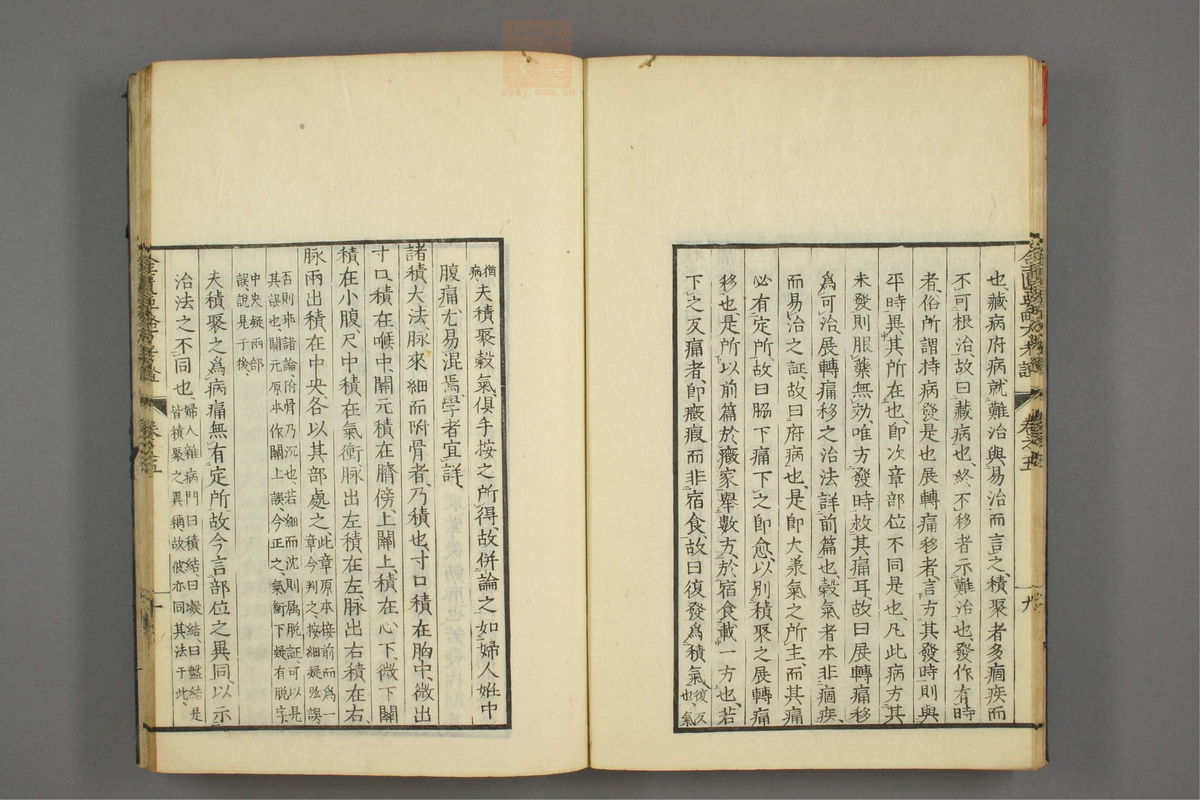 也、藏病府病就難治與易治而言之積聚者多痼疾而
不可根治、故曰藏病也、終不移者示難治也、發作有時
者、俗所謂持病發是也展轉痛移者言方其發時則與
平時異其所在也、即次章部位不同是也、凡此病方其
未發則服藥無効、唯方發時救其痛耳、故曰展轉痛移
爲可治、展轉痛移之治法詳前篇也穀氣者本非痼疾、
而易治之証、故曰府病也、是即大柴氣之所主、而其痛
必有定所、故曰脇下痛下之即愈、以別積聚之展轉痛
移也、是所以前篇於癥家舉數方、於宿食載一方也、若
下之反痛者、即癥瘕而非宿食、故曰復發爲積氣、復反也、氣
猶病夫積聚穀氣俱手按之所得、故併論之如婦人姙中
腹痛尤易混焉、學者宜詳、
諸積大法、脉來細而附骨者、乃積也、寸口積在胸中、微出
寸口、積在喉中、關元積在臍傍、上關上、積在心下、微下關
積在小腹、尺中積在氣衝脉出左積在左、脉出右積在右、
脉兩出積在中央、各以其部處之此章原本接前而爲一章今判之、按細疑弦誤
否則乖諸論、附骨乃沉也、若細而沈則屬脱証可以是
其誤也、關元原本作關上誤、今正之、氣衝下疑有脱字
中央疑兩部
誤説見于後、
夫積聚之爲病痛無有定所故今言部位之異同、以示
治法之不同也、婦人雜病門曰積結曰凝結、曰盤結是皆積聚之異稱故彼亦同其法于此、
卷之五
九
卷之五
十